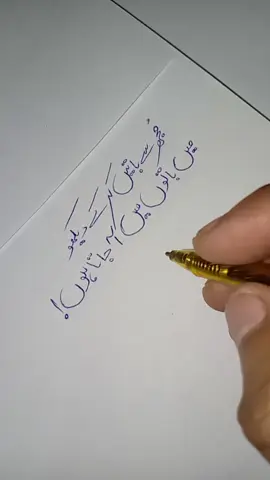 مجھ سے باتیں کر کے دیکھو
میں باتوں میں آ جاتا ہوں!